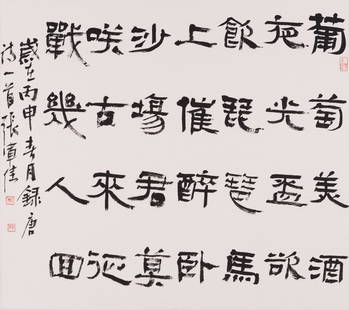 葡萄美酒
夜光盃欲
飲琵琶馬
上催醉卧
沙塲君莫
咲古來征
戰幾人回
歲在丙申春月録唐
诗一首張